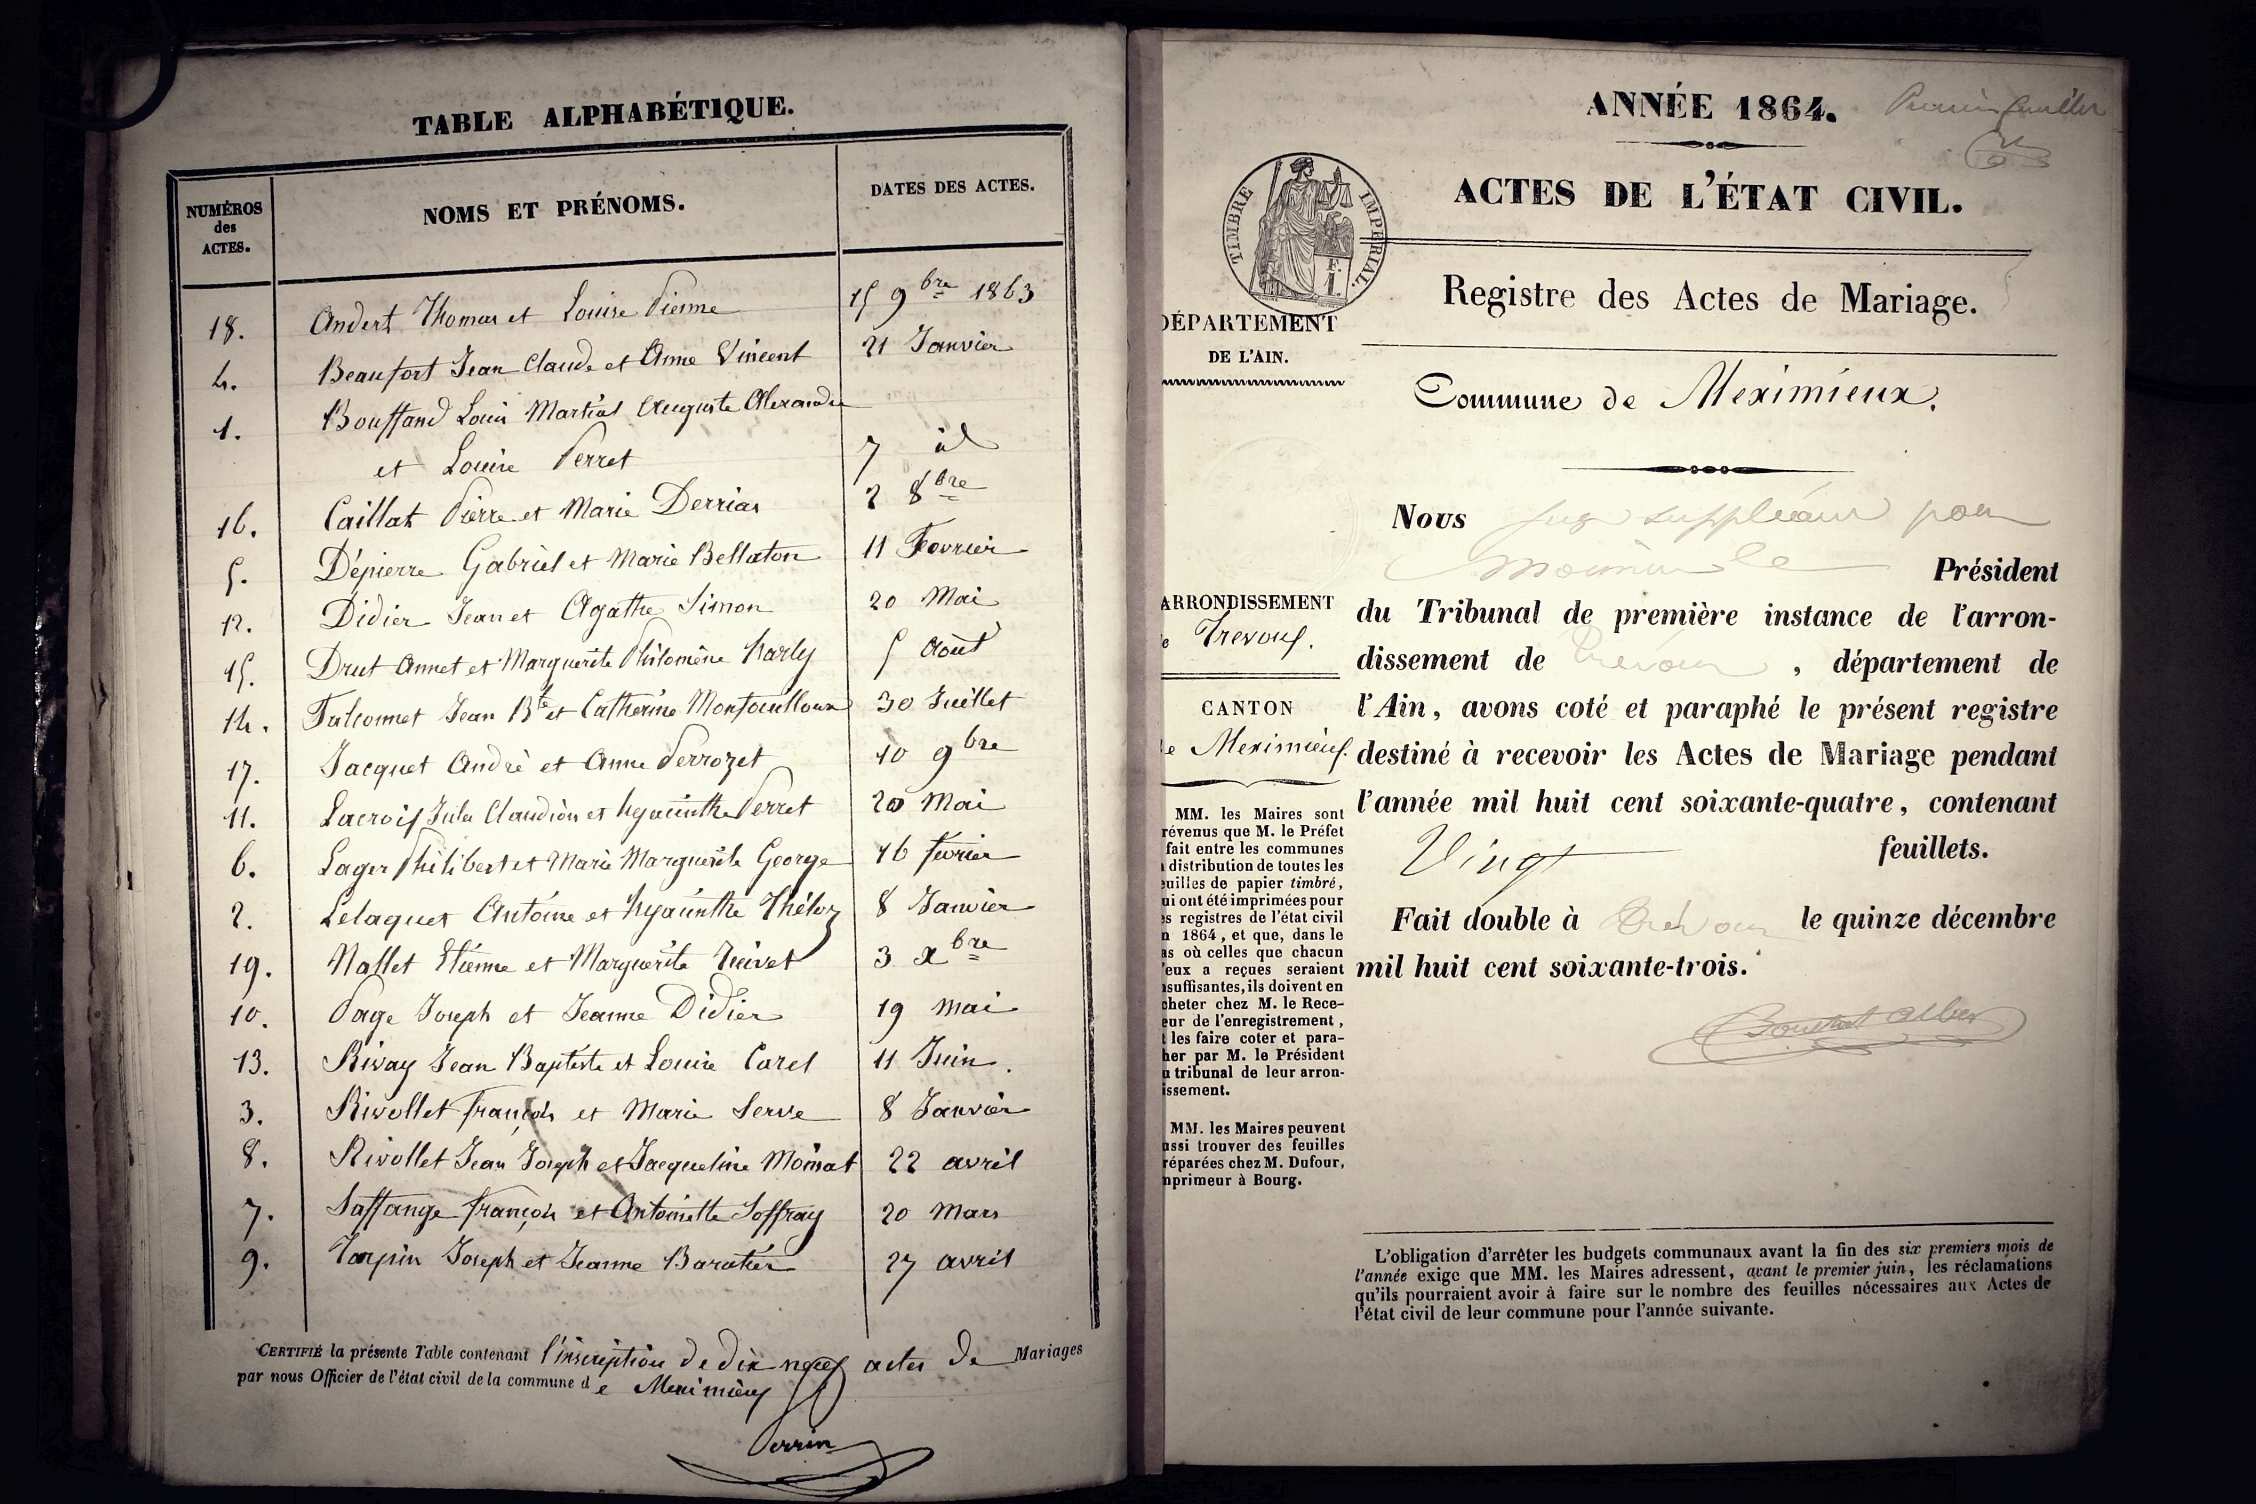 TABLE ALPHABÉTIQUE.
NUMÉROS des ACTES.
NOMS ET PRÉNOMS.
DATES DES ACTES.
18. Andert Thomas et Louise Pienne 15 9bre 1863
4. Beaufort Jean Claude et Anne Vincent 21 Janvier
1. Bouffand Louis Martial Auguste Alexandre
et Louise Perret 7 id
16. Caillat Pierre et Marie Derrias 2 8bre
5. Dépierre Gabriel et Marie Bellaton 11 Fevrier
12. Didier Jean et Agathe Simon 20 Mai
15. Drut Annet et Marguerite Philomène Karly 5 Août
14. Falconnet Jean Bte et Catherine Montouilloux 30 Juillet
17. Jacquet André et Anne Perrozet 10 9bre
11. Lacroix Jules Claudion et hyacinthe Perret 20 Mai
6. Lager Philibert et Marie Marguerite George 16 fevrier
2. Lelaquet Antoine et hyacinthe Théloz 8 Janvier
19. Nallet Etienne et Marguerite 3 xbre
10. Page Joseph et Jeanne Didier 19 Mai
13. Rivay Jean Baptiste et Louise Carel 11 Juin.
3. Rivollet françois et Marie Serve 8 Janvier
8. Rivollet Jean Joseph et Jacqueline Moinat 22 avril
7. Saffange françois et Antoinette Soffray 20 Mars
9. Torpin Joseph et Jeanne Baratier 27 avril
CERTIFIÉ la présente Table contenant l'inscription de dix neuf actes de Mariages
par nous Officier de l'état civil de la commune de Meximieux
Perrin
ANNÉE 1864.
Premier feuillet
ACTES DE L'ÉTAT CIVIL.
TIMBRE IMPÉRIAL.
F.
1.
Registre des Actes de Mariage.
DÉPARTEMENT
DE L'AIN.
Commune de Meximieux.
Nous juge suppléant pour
Président
du Tribunal de première instance de l'arron-
dissement de Trévoux, département de
l'Ain, avons coté et paraphé le présent registre
destiné à recevoir les Actes de Mariage pendant
l'année mil huit cent soixante-quatre, contenant
Vingt feuillets.
Fait double à Trévoux le quinze décembre
mil huit cent soixante-trois.
ARRONDISSEMENT
e Trevoux.
CANTON
de Meximieux.
MM. les Maires sont
révenus que M. le Préfet
fait entre les communes
a distribution de toutes les
euilles de papier timbré,
ui ont été imprimées pour
es registres de l'état civil
n 1864, et que, dans le
as où celles que chacun
'eux a reçues seraient
nsuffisantes, ils doivent en
cheter chez M. le Rece-
eur de l'enregistrement,
t les faire coter et para-
her par M. le Président
u tribunal de leur arron-
issement.
MM. les Maires peuvent
ussi trouver des feuilles
réparées chez M. Dufour,
mprimeur à Bourg.
L'obligation d'arrêter les budgets communaux avant la fin des six premiers mois de
l'année exige que MM. les Maires adressent, avant le premier juin, les réclamations
qu'ils pourraient avoir à faire sur le nombre des feuilles nécessaires aux Actes de
l'état civil de leur commune pour l'année suivante.